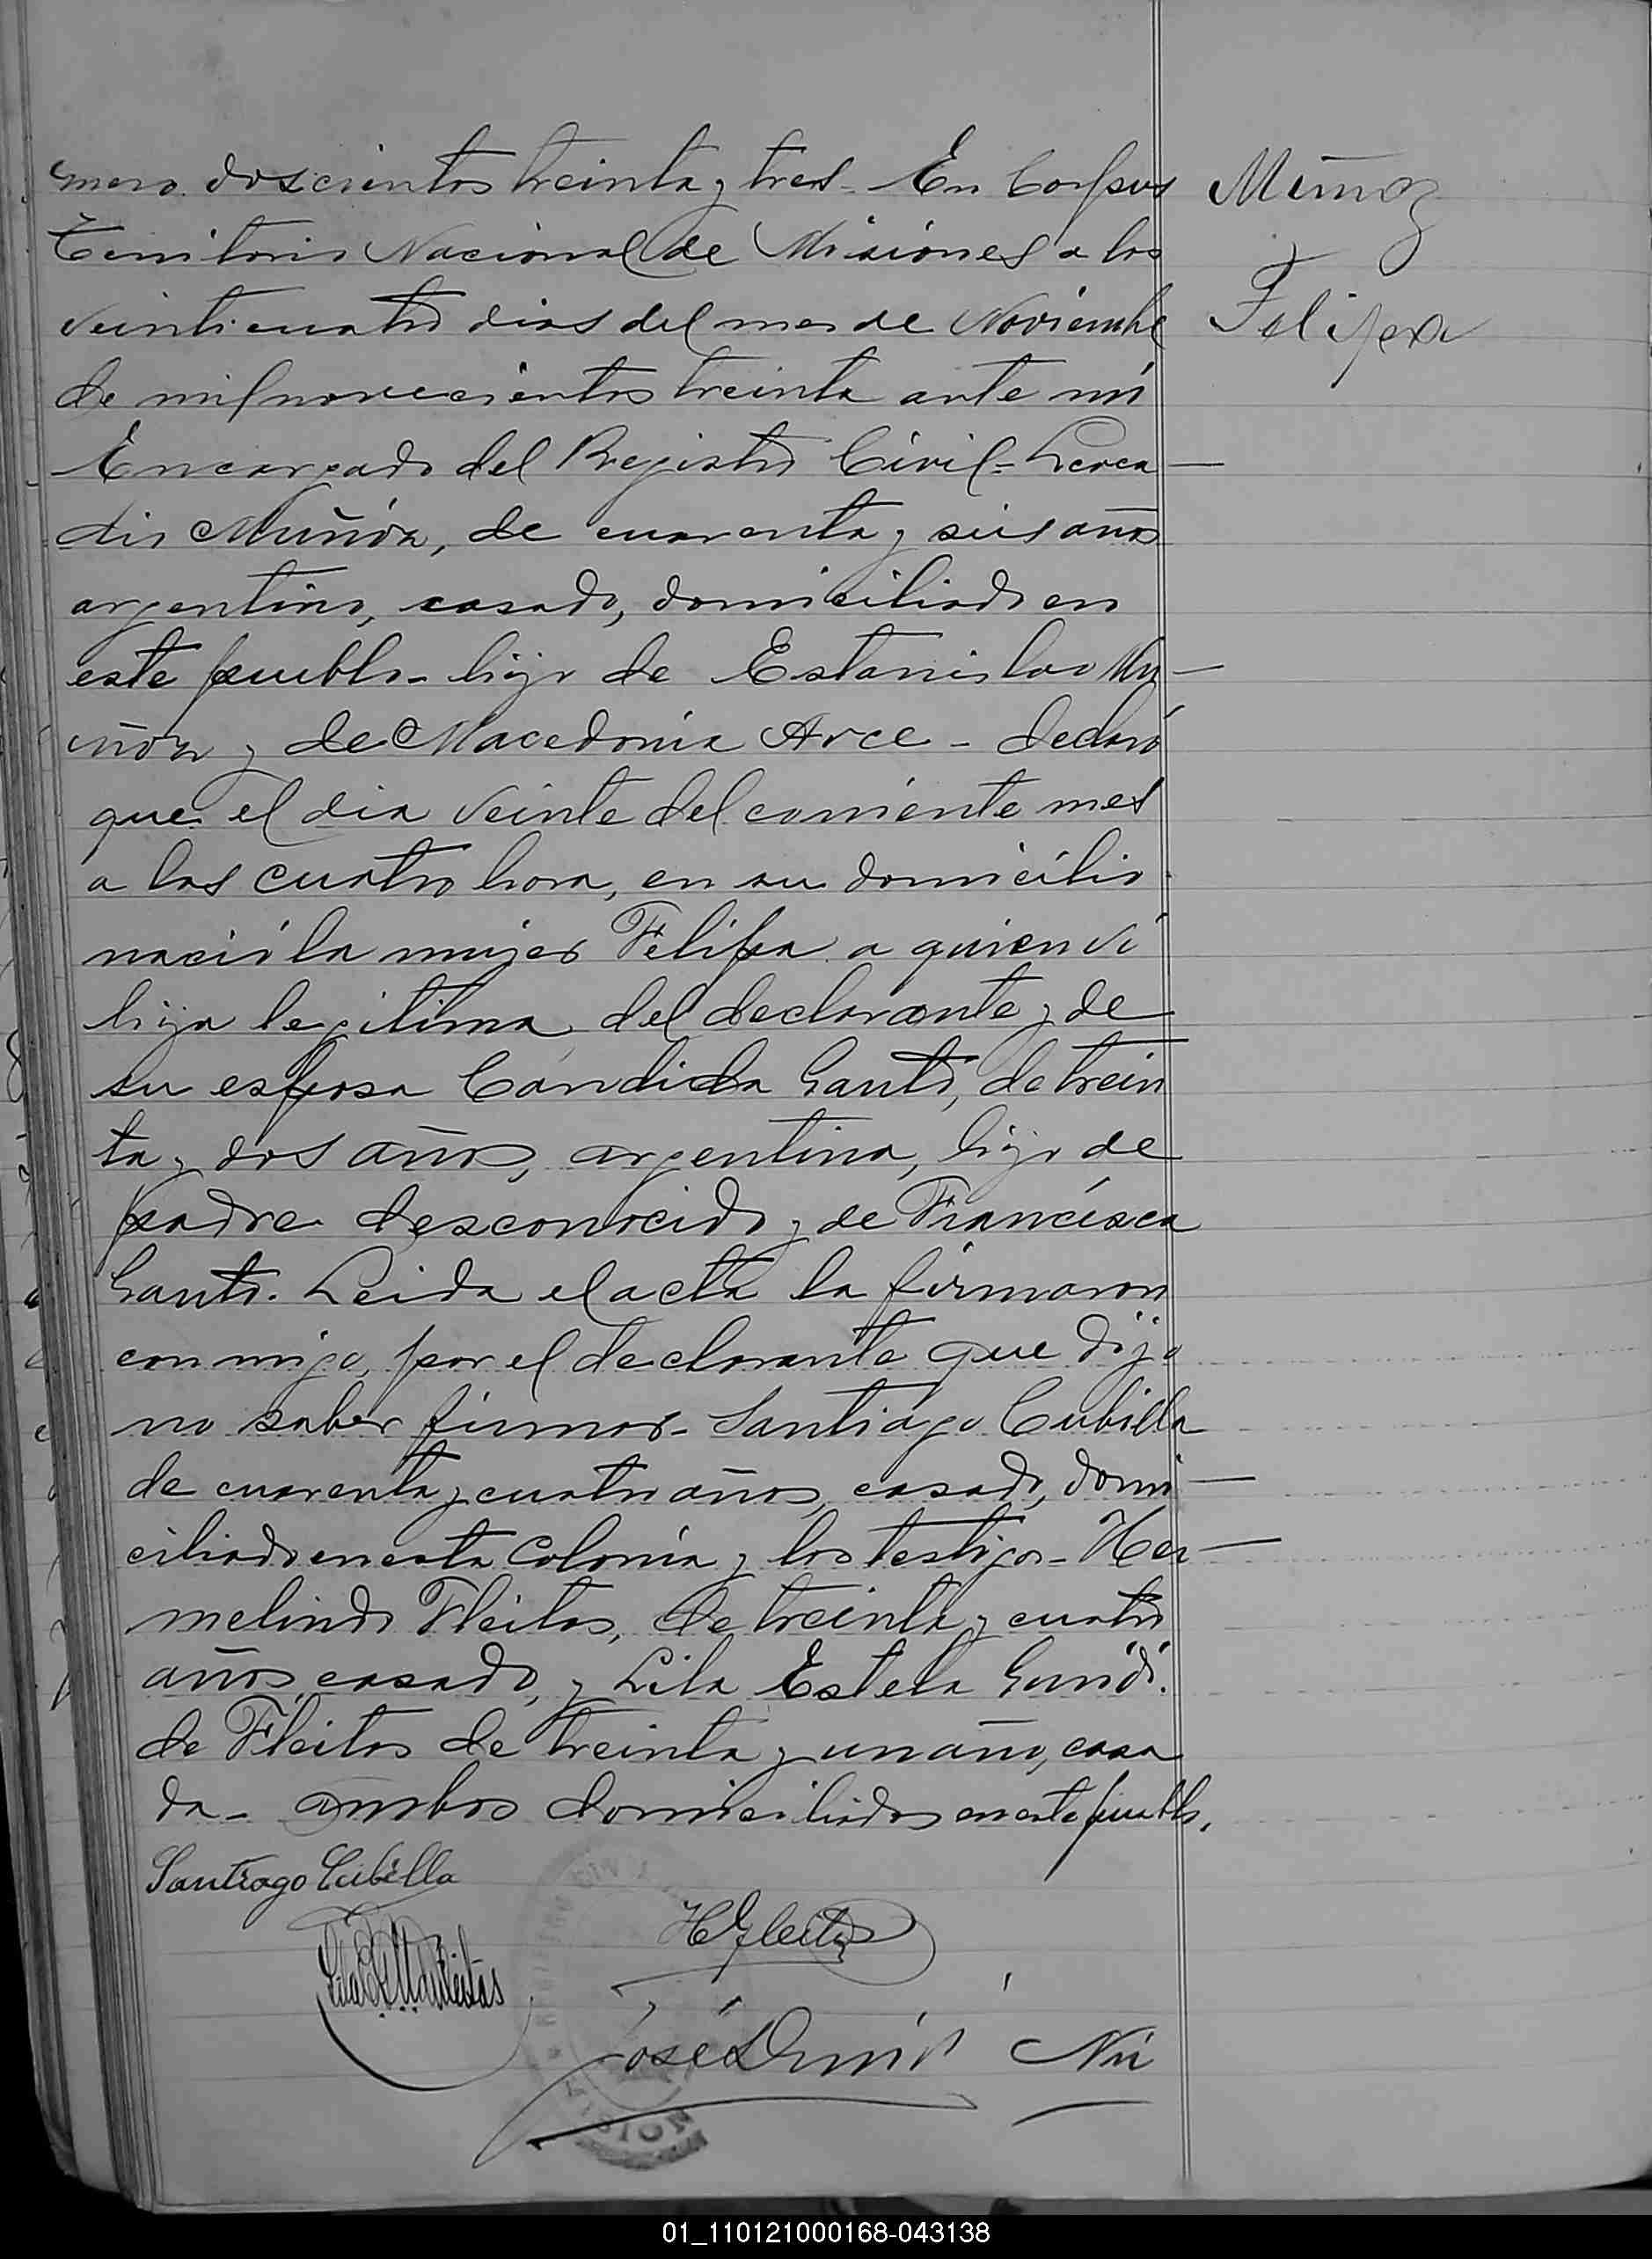 mero doscientos treinta y tres - En Corpus
Territorio Nacional de Misiones a los
veinticuatro dias del mes de Noviembre
de mil novecientos treinta ante mí
Encargado del Registro Civil =
Muñóz, de cuarenta y seis años
argentino, casado, domiciliado en
este pueblo - hijo de Estanislao Mu-
ñóz y de Macedonia Arce - declaró
que el dia veinte del corriente mes
a las cuatro hora, en su domicilio
nació la mujer Felipa a quien ví
hija legitima del declarante y de
su esposa Candida Gauto, de trein
ta y dos años, argentina, hija de
padre desconocido y de Francisca
Gauto. Leida el acta la firmaron
conmigo, por el declarante que dijo
no saber firmar - Santiago Cubilla
de cuarenta y cuatro años, casado, domi-
ciliado en esta Colonia y los testigos - Her-
melindo Fleitas, de treinta y cuatro
años, casado, y Lila Estela
de Fleitas de treinta y un año, casa
da - ambos domiciliados en este pueblo.
Muñoz
Felipa
Santiago Cubilla
H Fleitas
José
01_110121000168-043138